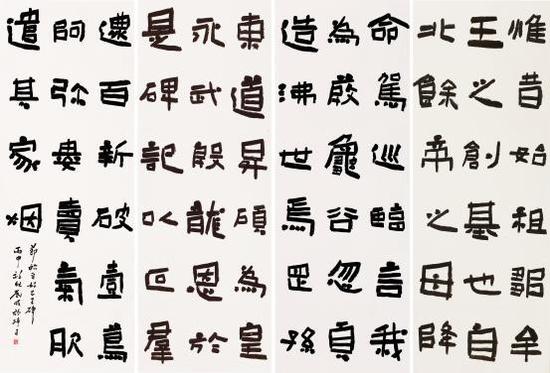 惟昔始祖鄒牟
王之創基也自
北餘帝之母降
命駕巡臨言我
為葭龜谷忽負
造沸世焉罡孫
東道昇碩為皇
永武殷龍恩於
是碑記以叵羣
百新破壹
阿弥婁賣氣
遣其家烟
丙申